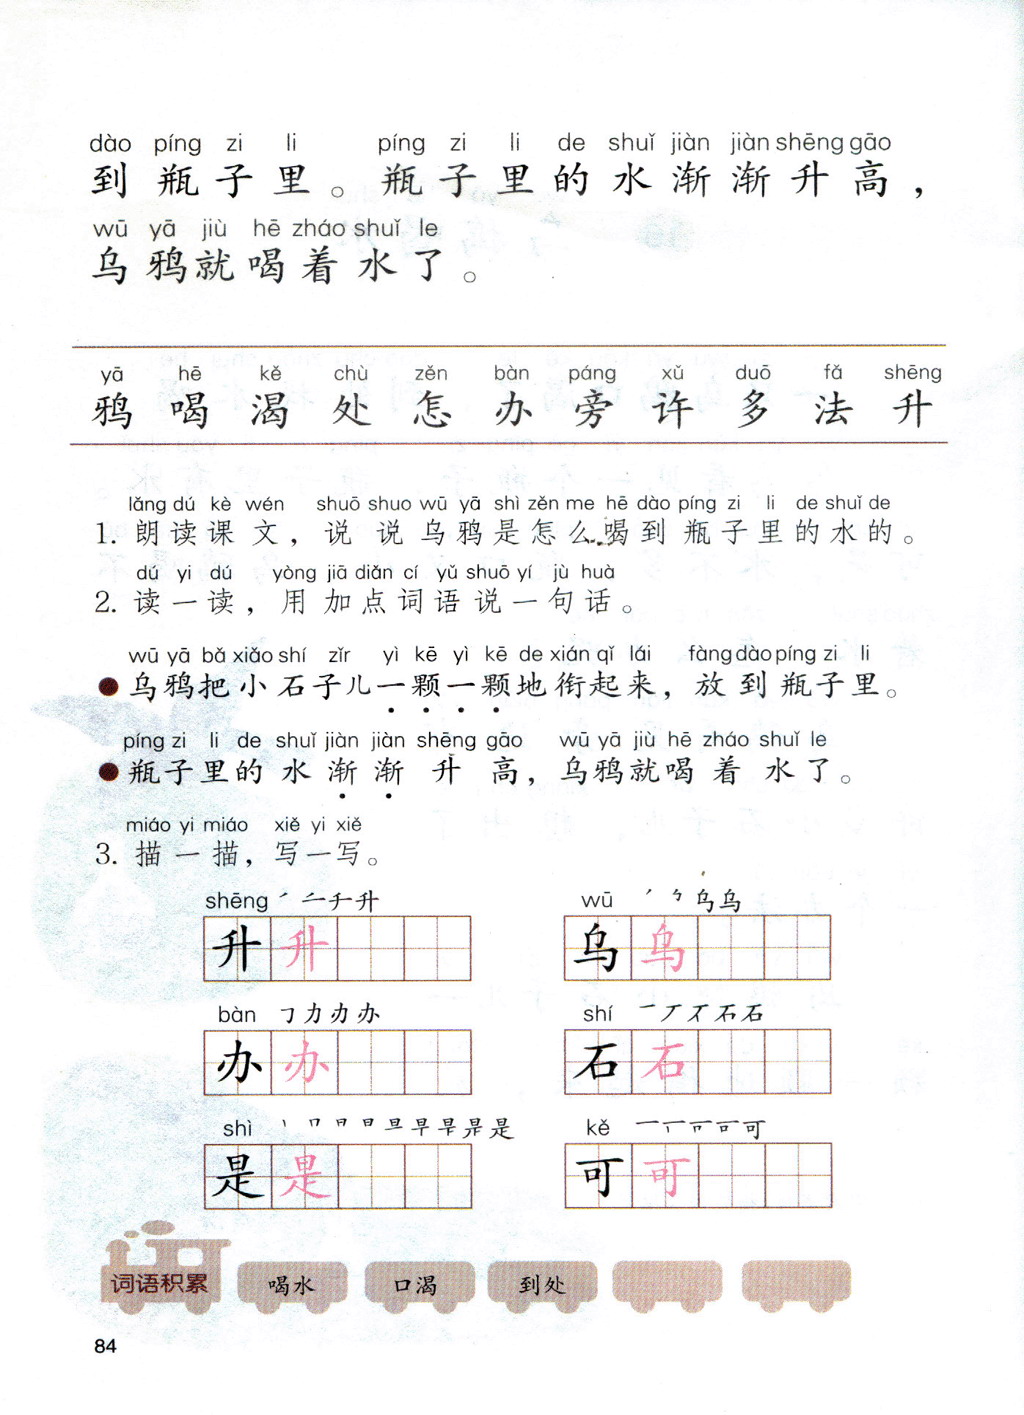 dào píng zi li píng zi li de shuǐ jiàn jiàn shēng gāo
到瓶子里。瓶子里的水渐渐升高，
wū yā jiù hē zháo shuǐ le
乌鸦就喝着水了。
yā hē kě chù zěn bàn páng xǔ duō fǎ shēng
鸦 喝 渴 处 怎 办 旁 许 多 法 升
lǎng dú kè wén shuō shuo wū yā shì zěn me hē dào píng zi li de shuǐ de
1. 朗读课文，说说乌鸦是怎么喝到瓶子里的水的。
dú yi dú yòng jiā diǎn cí yǔ shuō yí jù huà
2. 读一读，用加点词语说一句话。
wū yā bǎ xiǎo shí zǐr yì kē yì kē de xián qǐ lái fàng dào píng zi li
●乌鸦把小石子儿一颗一颗地衔起来，放到瓶子里。
píng zi li de shuǐ jiàn jiàn shēng gāo wū yā jiù hē zháo shuǐ le
●瓶子里的水渐渐升高，乌鸦就喝着水了。
miáo yi miáo xiě yi xiě
3. 描一描，写一写。
shēng wū
升 升 乌 乌
bàn shí
办 办 石 石
shì kě
是 是 可 可
词语积累 喝水 口渴 到处
84